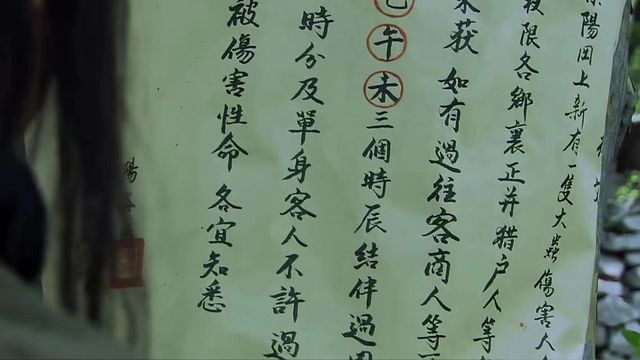 陽岡上新有一隻大蟲傷害人
限各鄉裏正并猎户人等
获如有過往客商人等
午未三個時辰結伴過
時分及單身客人不許過
被傷害性命各宜知悉
陽